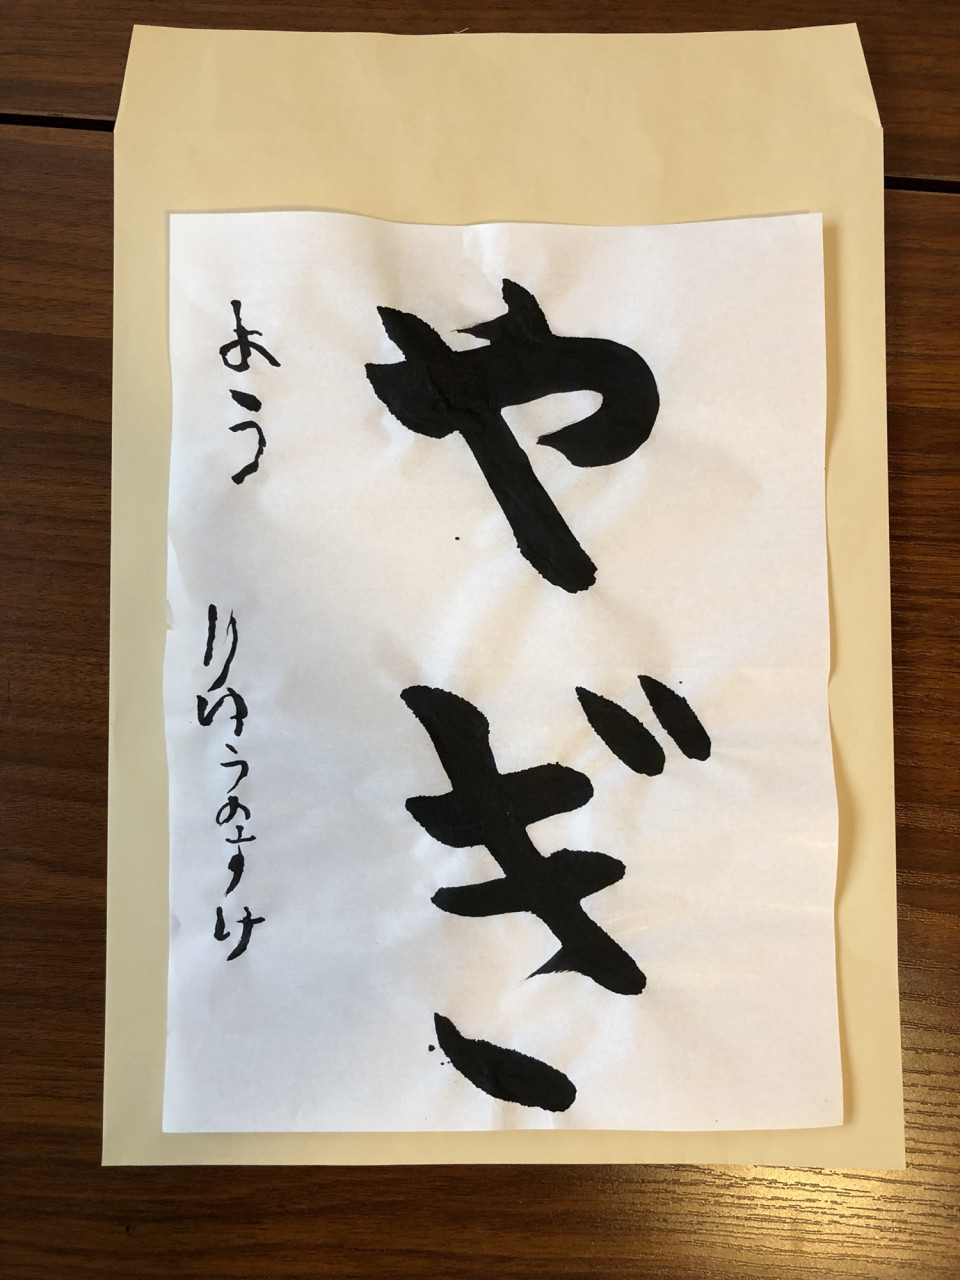 やぎ
よう りゆうのすけ